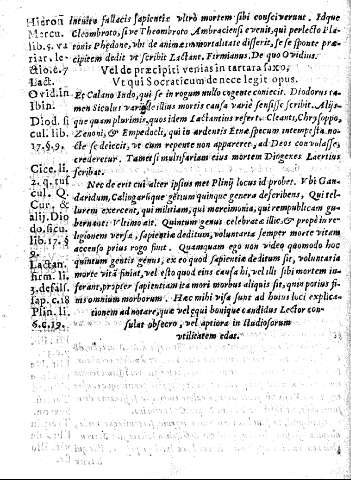 Hieron
Mercu.
lib. 5. va
riar. le-
ctio. e. 7
Lact.
Ovid. in
Ibin.
Diod. si
cul. lib.
17. §. 9.
Cice. li.
2. q. tuf
cul. Q.
Cur. &
alij. Dio
do. sicu
lib. 17. §
9.
Lactan.
firm. li.
3. defalf.
sap. c. 18
Plin. li.
6. c. 19.
Intuitu fallacis sapientiæ vltrò mortem sibi consciverunt. Idque
Cleombroto, sive Theombroto Ambraciensi evenit, qui perlecto Pla-
tonis Phędone, vbi de animæ immortalitate disserit, se se sponte præ-
cipitem dedit vt scribit Lactant. Firmianus. De quo Ovidius.
Vel de præcipiti venias in tartara saxo,
Vt qui Socraticum de nece legit opus.
Et Calano Indo, qui se in rogum nullo cogente coniecit. Diodorus ta-
men Siculus variè de illius mortis causa variè sensisse scribit. Alijs-
que quamplurimis, quos idem Lactantius refert. Cleanti, Chrysippo,
Zenoni, & Empedocli, qui in ardentis Etnæ specum intempesta no-
cte se deiecit, vt cum repente non apparere, ad Deos convolasse,
crederetur. Tametsi multifariam eius mortem Diogenes Laertius
scribat.
Nec de erit cui alter ipsius met Plinij locus id probet. Vbi Gan-
daridum, Caliogarũque gẽtium quinque genera describens, Qui tel-
lurem exercent, qui militiam, qui mercimonia, qui rempublicam gu-
bernant: Vltimo ait. Quintum genus celebratæ illic, & propè in re-
ligionem versæ, sapientiæ deditum, voluntaria semper morte vitam
accenso prius rogo finit. Quamquam ego non video quomodo hoc
quintum gentis genus, ex eo quod sapientiæ deditum sit, voluntaria
morte vitā finiat, vel esto quod eius causa hi, vel illi sibi mortem in-
ferant, propter sapientiam ita mori morbus aliquis sit, quin potius fi-
nis omnium morborum. Hæc mihi visa sunt ad huius loci explica-
tionem ad notare, quæ vel equi bonique candidus Lector con-
sulat obsecro, vel aptiora in studiosorum
vtilitatem edat.